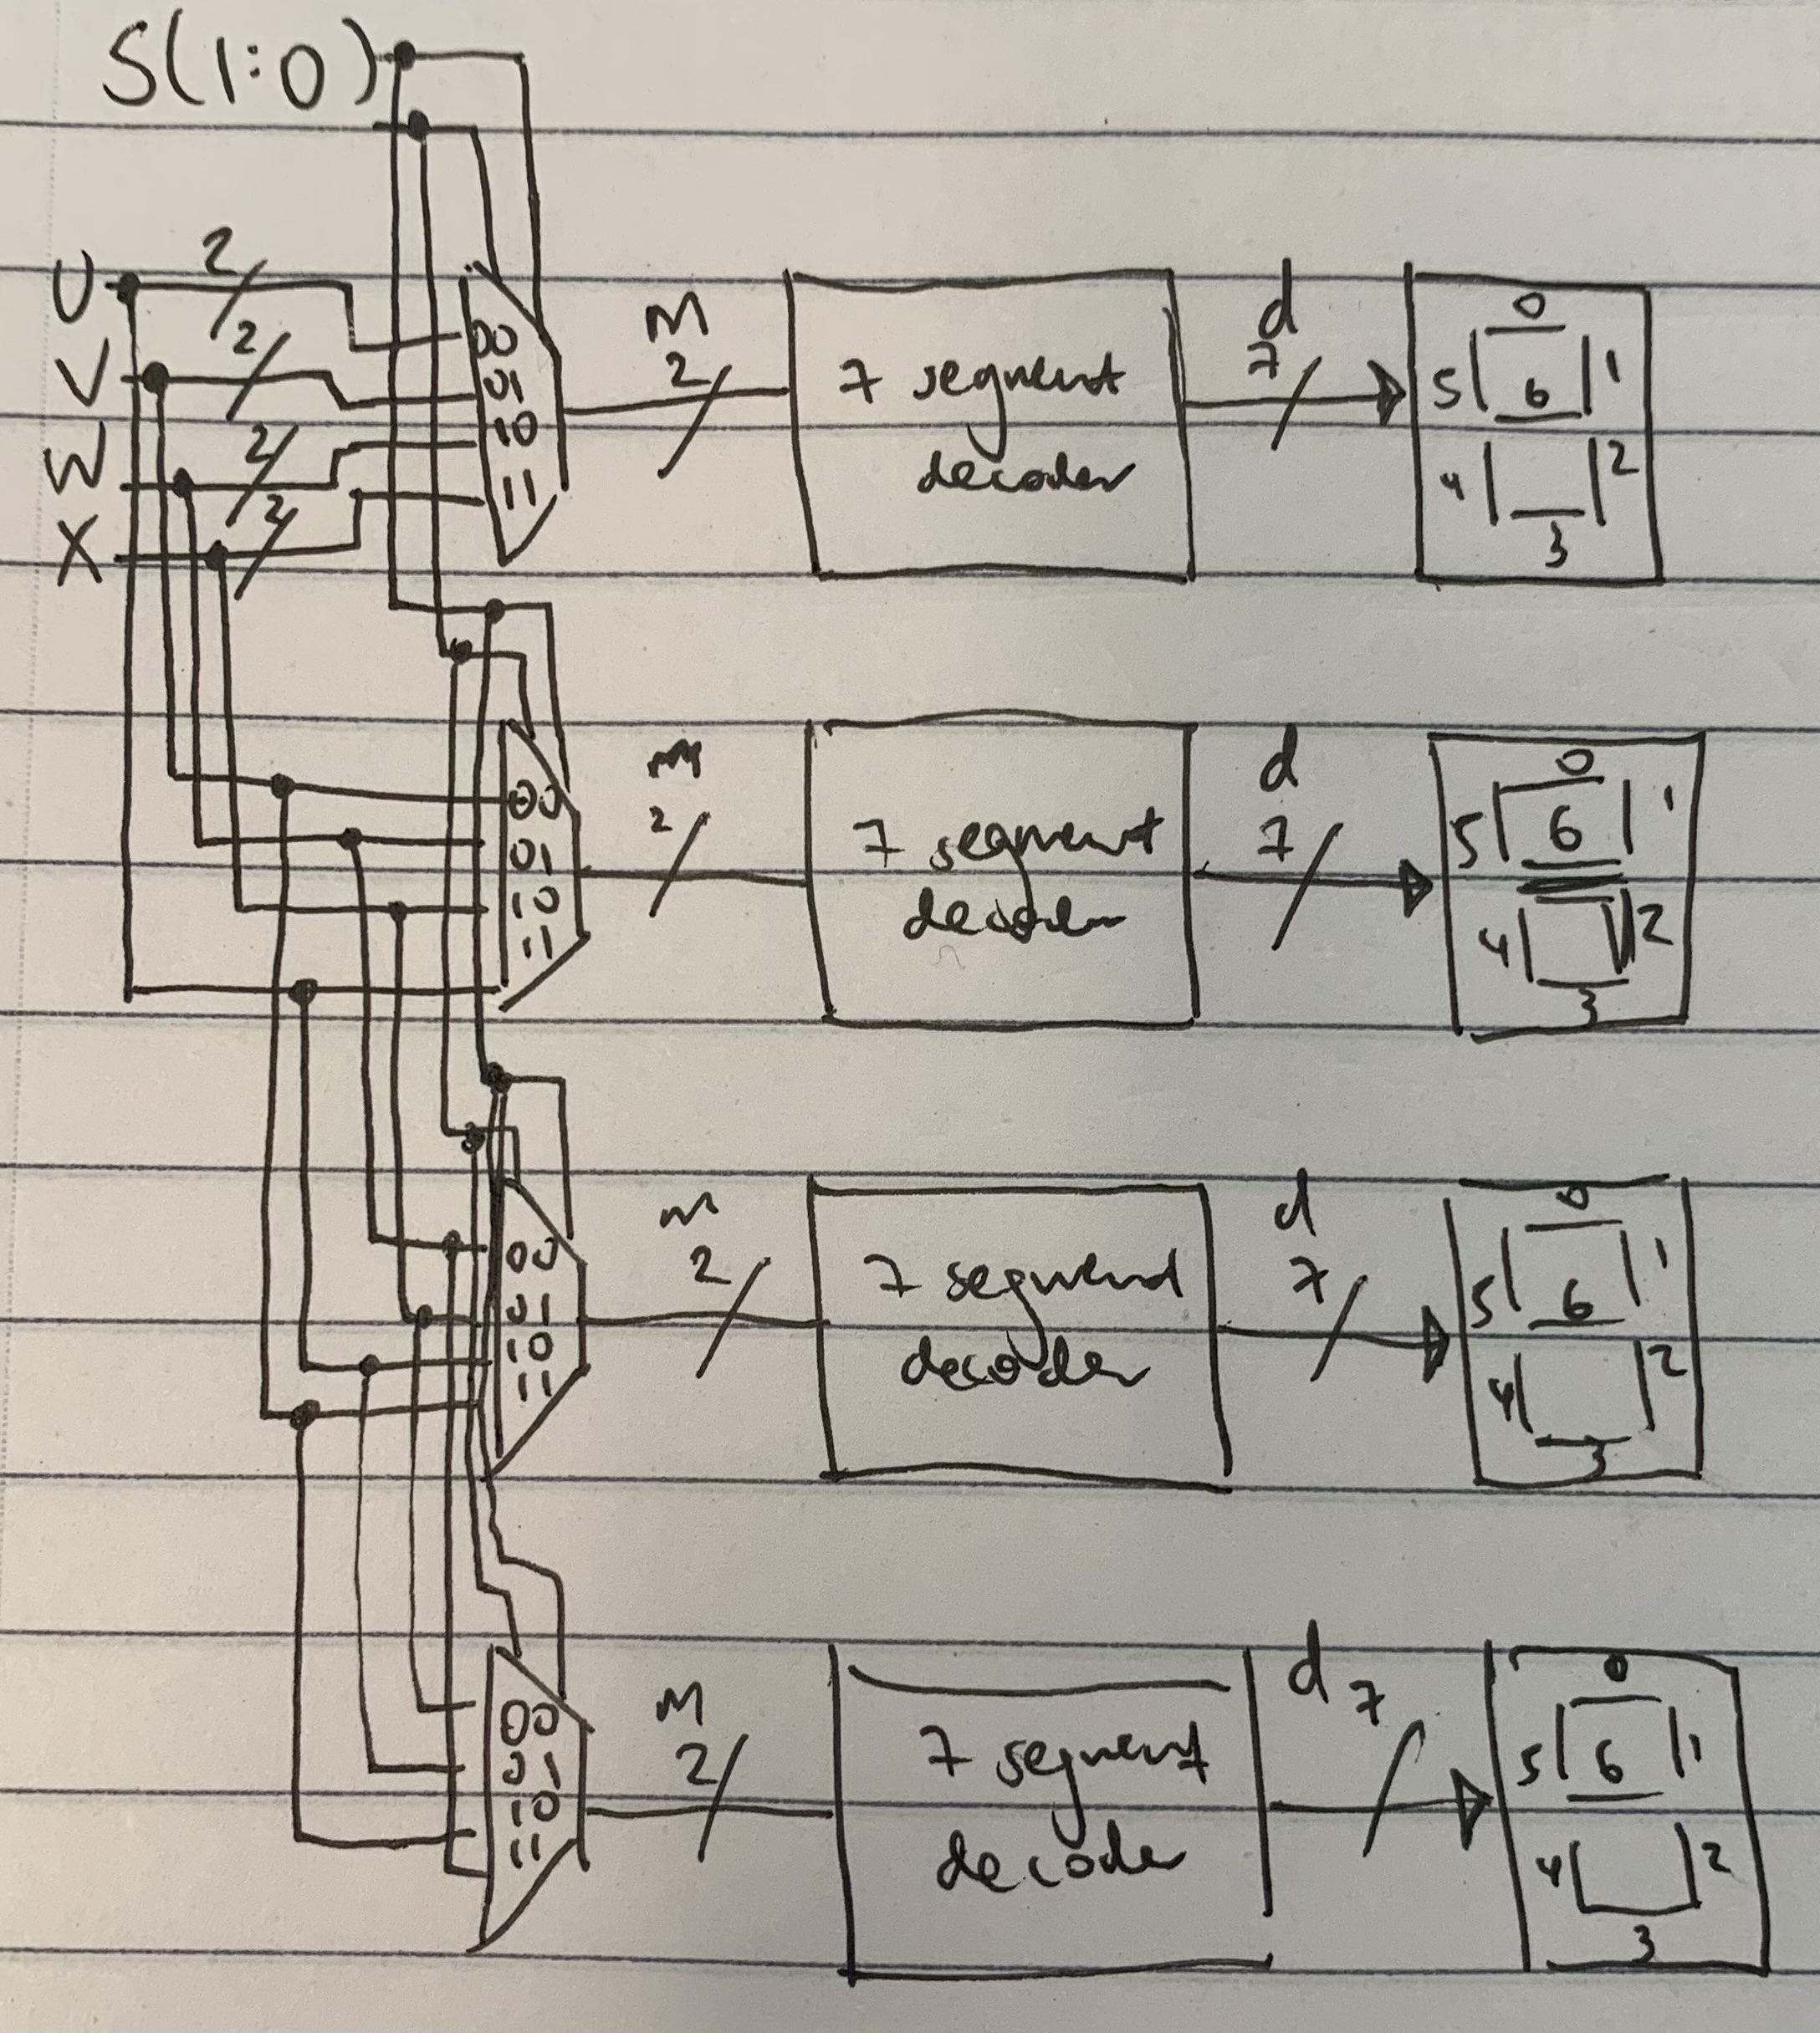 S(1:0)
U 2
V 2
W 2
X 2
00
01
10
11
M
2
7 segment
decoder
d
7
0
5 6 1
4 2
3
00
01
10
11
m
2
7 segment
decoder
d
7
0
5 6 1
4 2
3
00
01
10
11
m
2
7 segment
decoder
d
7
0
5 6 1
4 2
3
00
01
10
11
M
2
7 segment
decoder
d 7
0
5 6 1
4 2
3